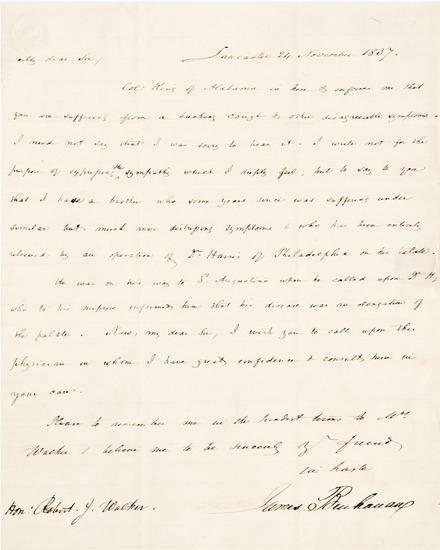 Lancaster 24 November 1837.
My dear Sir,
Col: King of Alabama is here & informs me that
you are suffering from a hacking cough & other disagreeable symptoms.
I need not say that I was sorry to hear it. I write not for the
purpose of expressing the sympathy which I deeply feel; but to say to you
that I have a brother who some years since was suffering under
similar but much more distressing symptoms & who has been entirely
relieved by an operation of Dr Harris of Philadelphia on his palate.
He was on his way to St Augustine when he called upon Dr H,
who to his surprise informed him that his disease was an elongation of
the palate. Now, my dear Sir, I wish you to call upon this
physician in whom I have great confidence & consult him in
your case.
Please to remember me in the kindest terms to Mrs
Walker & believe me to be sincerely yr friend
in haste
James Buchanan
Hon: Robert J. Walker.